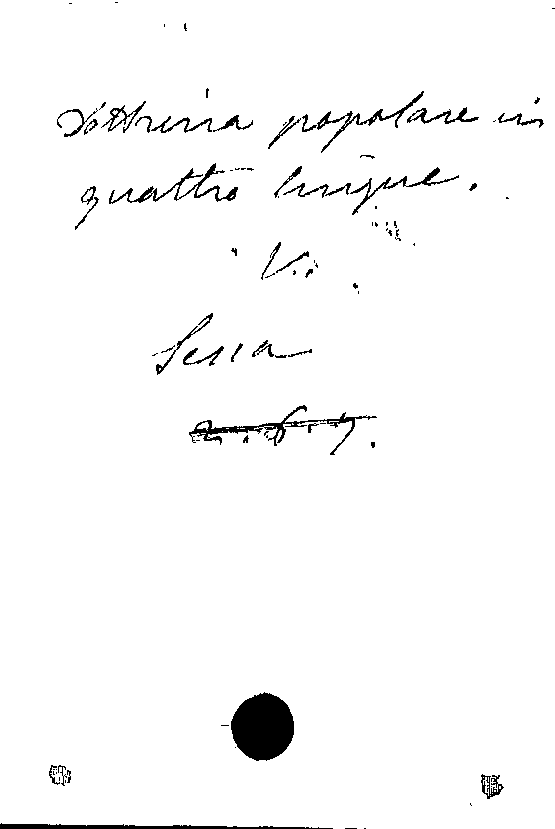 Dottrina popolare in
quattro lingue.
V.
Serra
2.6.7.